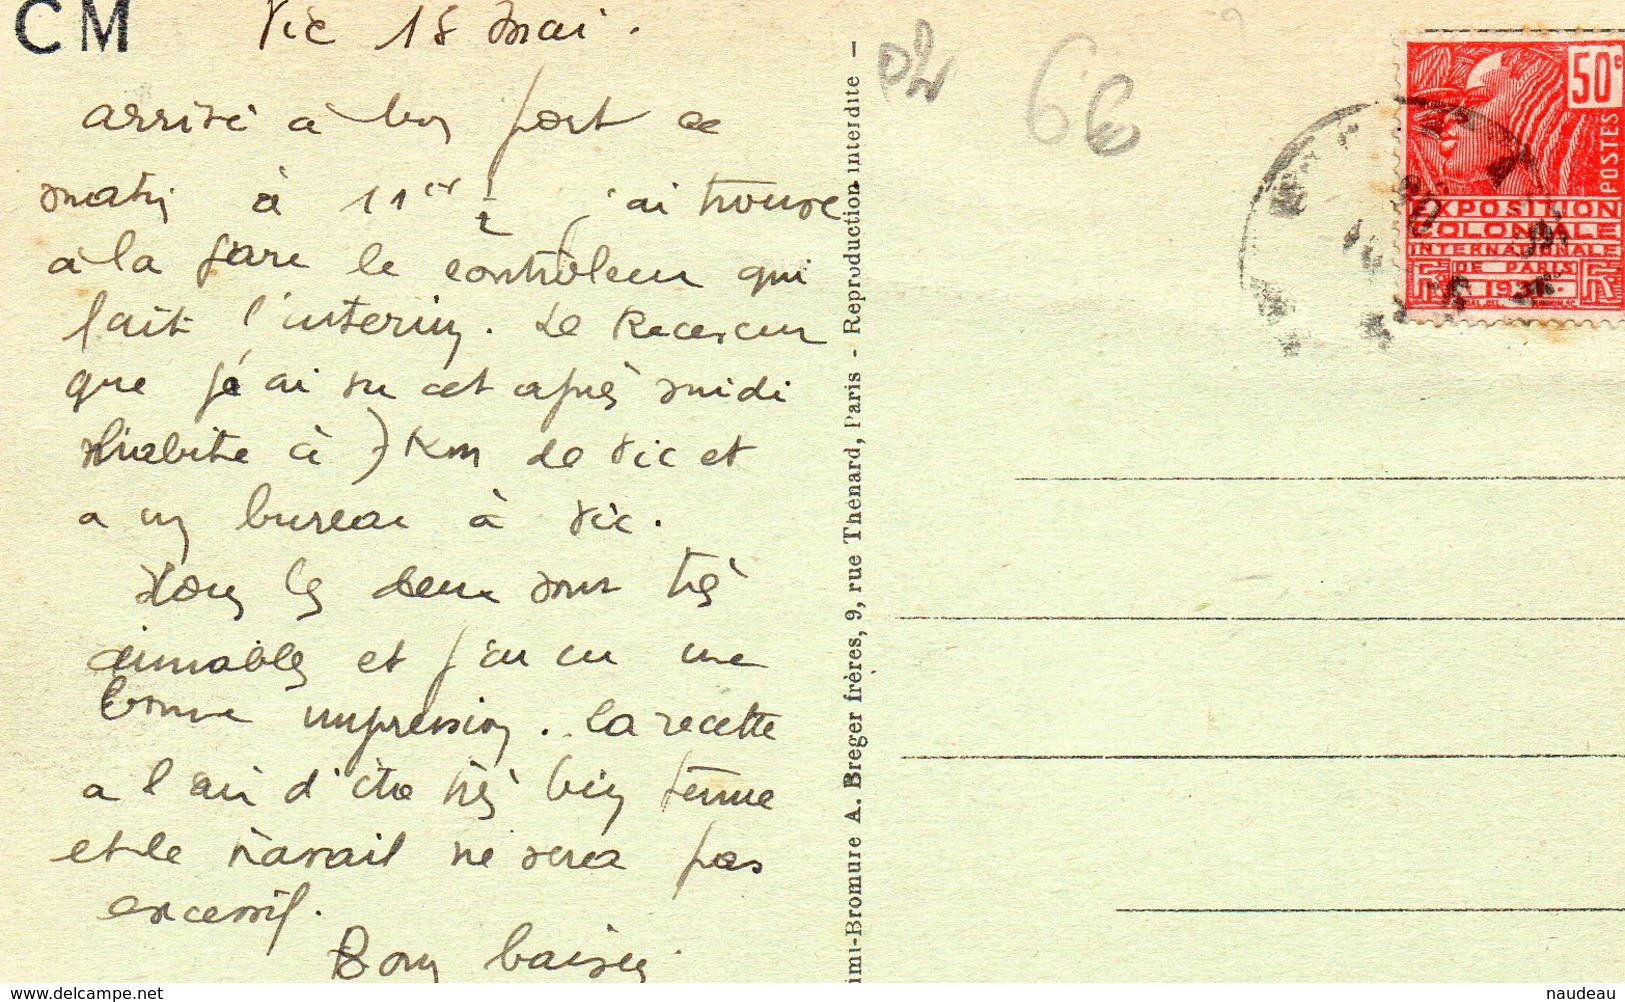 CM
Vic 18 mai.
arrivé à bon port ce
matin à 11 h ½ j'ai trouvé
à la gare le contrôleur qui
fait l'interim. Le Receveur
que j'ai vu cet après midi
habite à 7 Km de Vic et
a un bureau à Vic.
Tous les deux sont très
aimables et j'ai eu une
bonne impression. La recette
a l'air d'être très bien tenue
et le travail ne sera pas
excessif.
Bons baisers
imi-Bromure A. Breger frères, 9, rue Thenard, Paris - Reproduction interdite -
66
50c
POSTES
EXPOSITION
COLONIALE
INTERNATIONALE
DE PARIS
1931
https://www.delcampe.net
naudeau